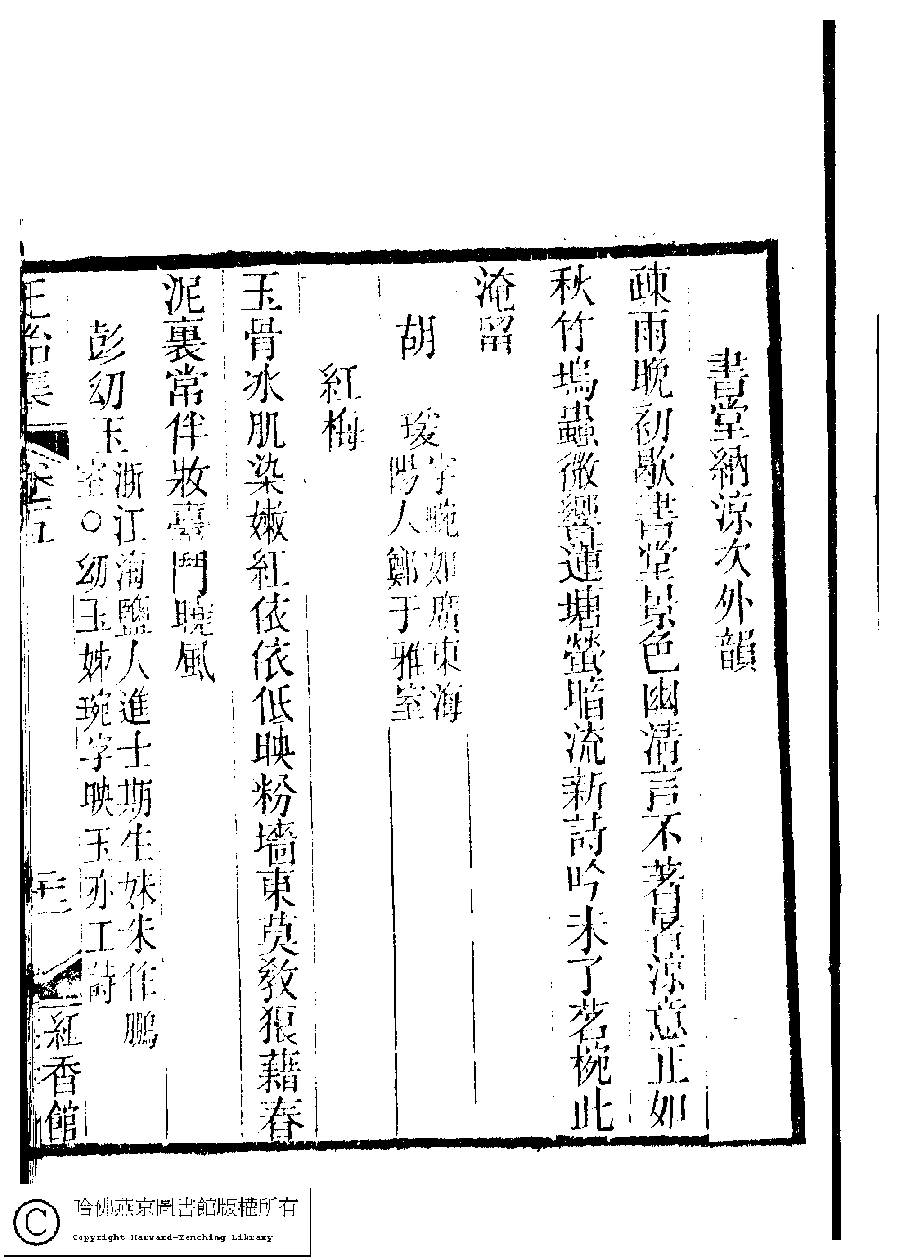 書堂納涼次外韻
疎雨晩初歇書堂景色幽淸言不著暑涼意正如
秋竹塢蟲微響蓮塘螢暗流新詩吟未了茗椀此
淹留
胡　瑗字晼如廣東海
陽人鄭于雅室
紅梅
玉骨冰肌染嫩紅依依低映粉墻東莫敎狼藉春
泥裏常伴妝臺鬥曉風
彭幼玉浙江海鹽人進士期生妹朱作鵬
室○幼玉姊琬字映玉亦工詩
正始集
卷五
二十三
紅香館
哈佛燕京圖書館版權所有
Copyright Harvard-Yenching Library